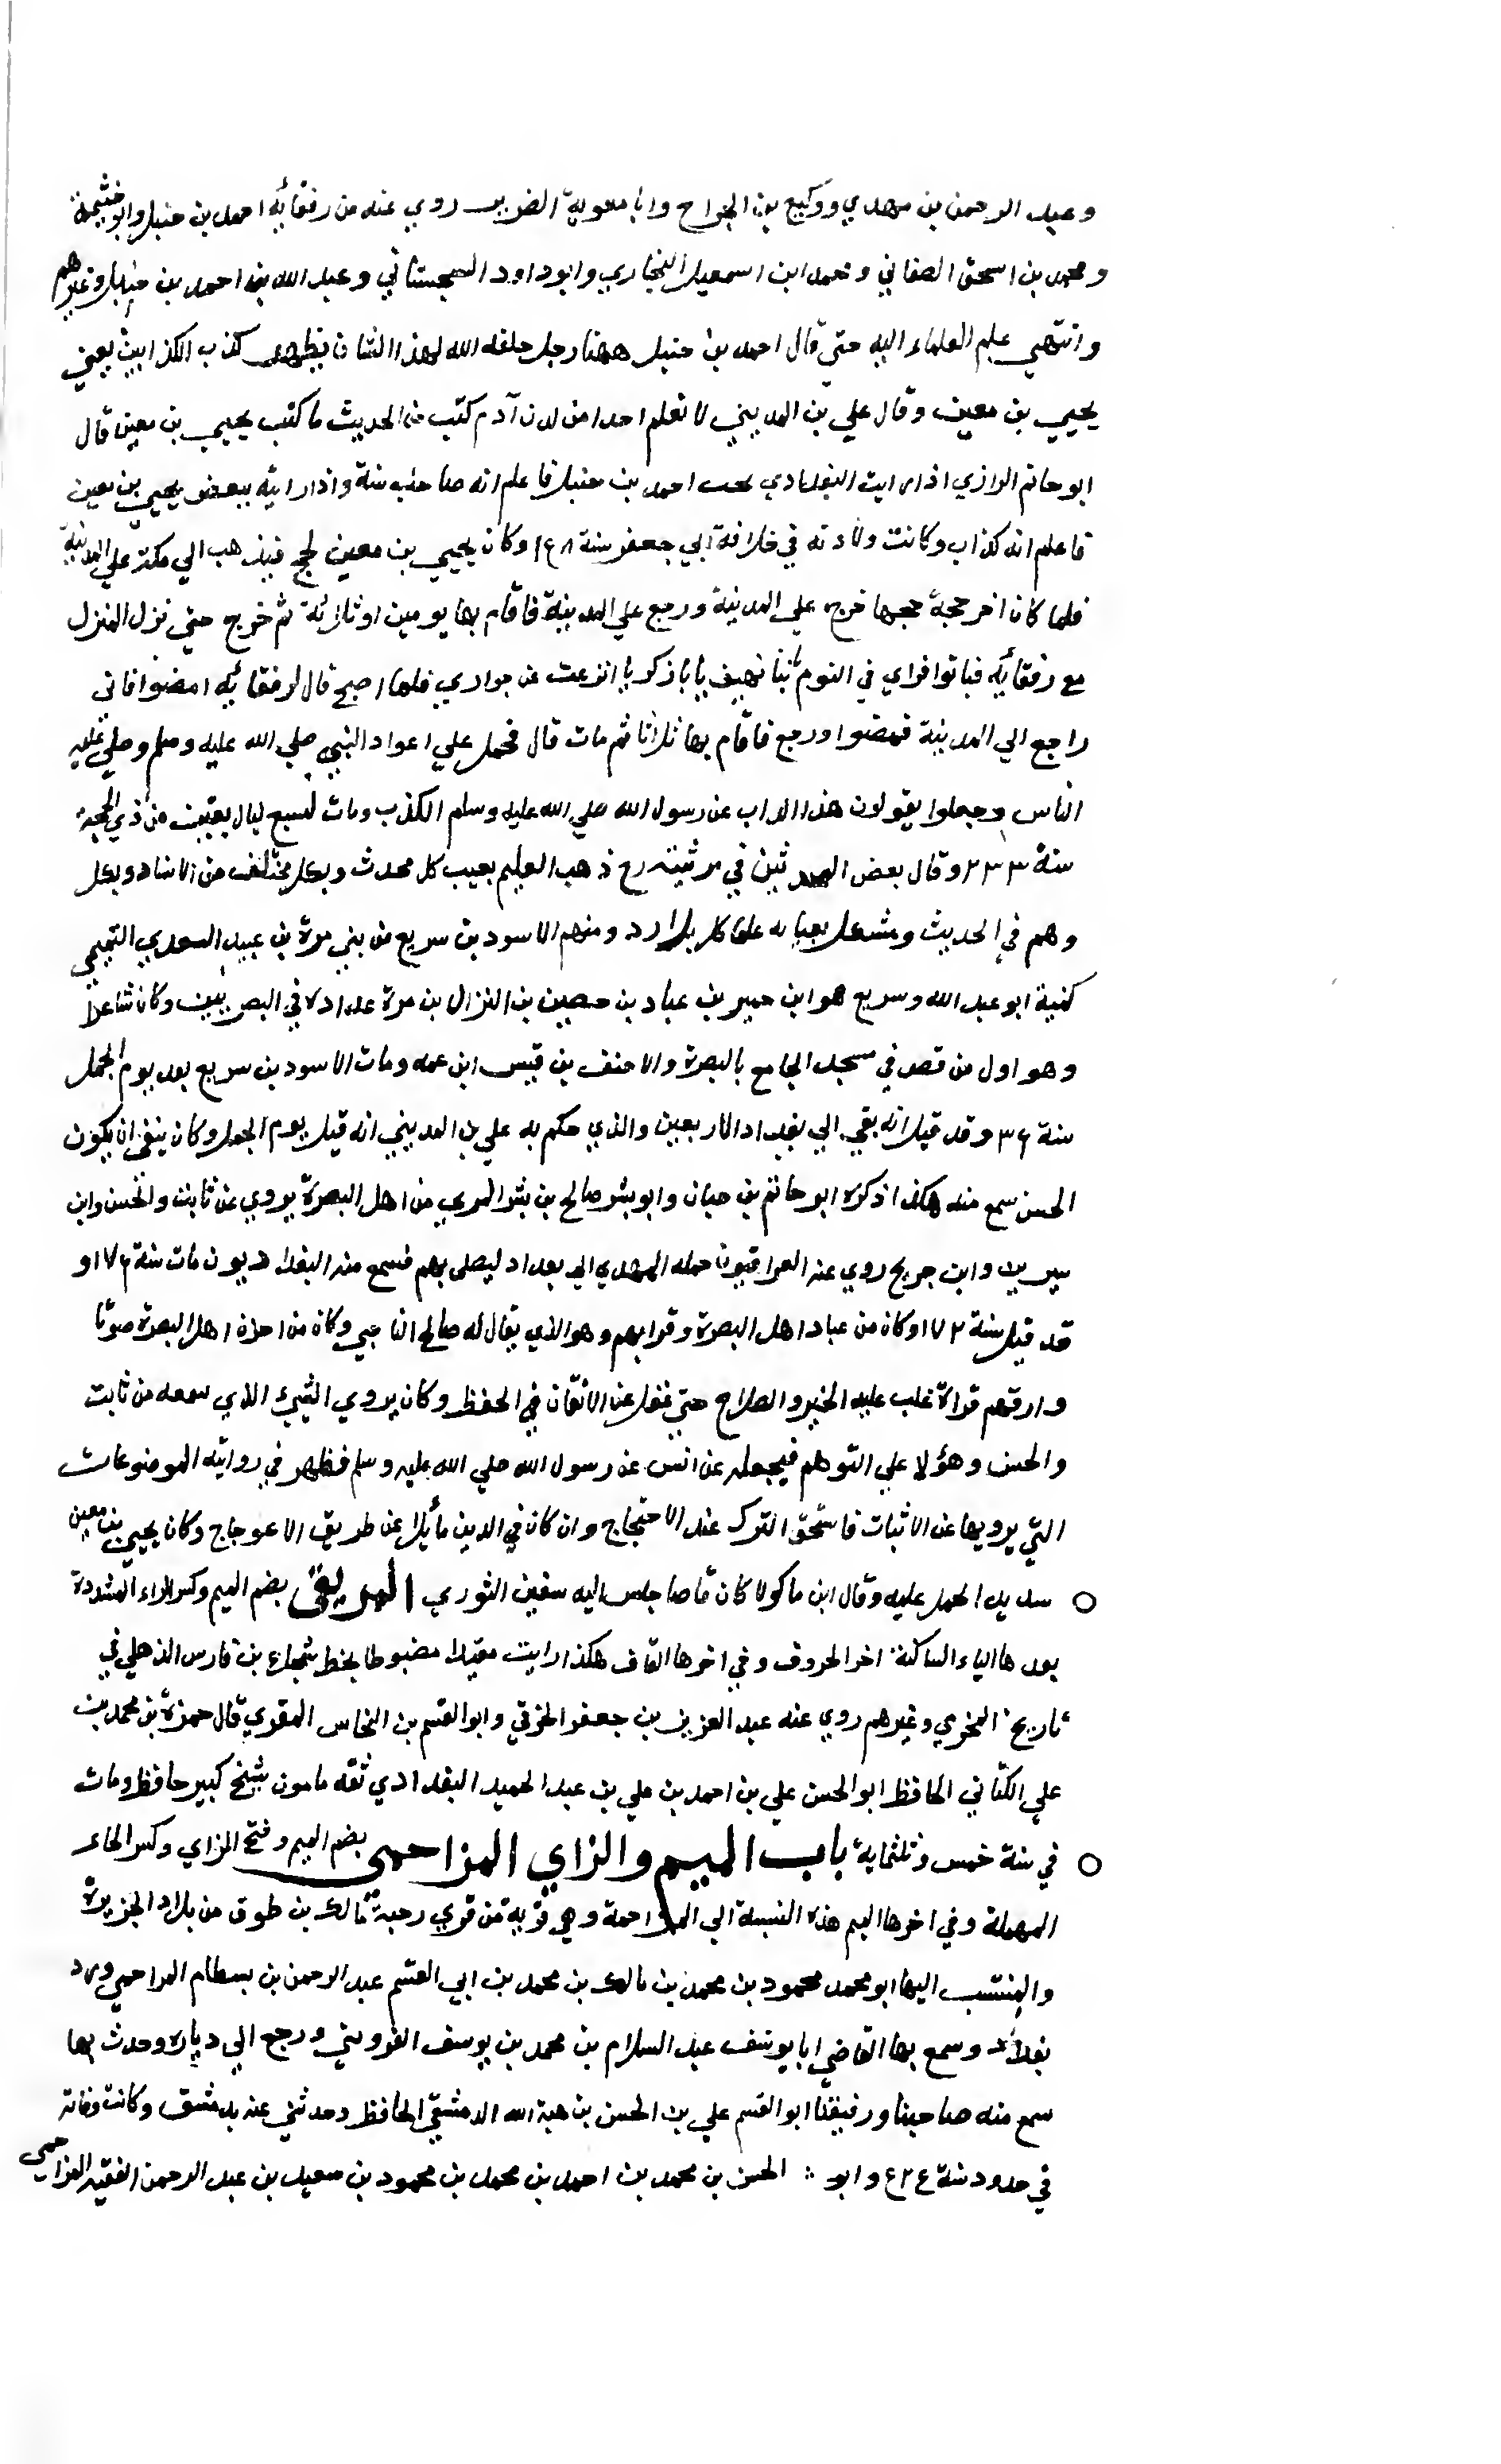 وعبد الرحمن بن مهدي ووكيع بن الجراح وابا معوية الضرير روي عنه من رفقائه احمد بن حنبل وابو خثيمة
ومحمد بن اسحق الصغاني ومحمد ابن اسمعيل البخاري وابو داود السجستاني وعبد الله بن احمد بن حنبل وغيرهم
وانتهي علم العلماء اليه حتي قال احمد بن حنبل ههنا رجل خلقه الله لهذا الشان يظهر كذب الكذابين يعني
يحيي بن معين وقال علي بن المديني لا نعلم احدا من لدن آدم كتب من الحديث ما كتب يحيي بن معين قال
ابو حاتم الرازي اذا رايت البغدادي يحب احمد بن حنبل فاعلم انه صاحب سنة واذا رايته يبغض يحيي بن معين
فاعلم انه كذاب وكانت ولادته في خلافة ابي جعفر سنة ١٤٨ وكان يحيي بن معين لحج فيذهب الي مكة علي المدينة
فلما كان اخر حجة حجها خرج علي المدينة ورجع علي المدينة فاقام بها يومين او ثلاثة ثم خرج حتي نزل المنزل
مع رفقائه فباتوا فراي في النوم يا ابا زكريا اترعب عن جواري فلما اصبح قال لرفقائه امضوا فاني
راجع الي المدينة فمضوا ورجع فاقام بها ثلاثا ثم مات قال فحمل علي اعواد النبي صلي الله عليه وسلم وصلي عليه
الناس وجعلوا يقولون هذا الذاب عن رسول الله صلي الله عليه وسلم الكذب ومات لسبع ليال بقين من ذي الحجة
سنة ٢٣٣ وقال بعض المحدثين في مرثيته رح ذهب العليم بعيب كل محدث وبكل مختلف من الاسناد وبكل
وهم في الحديث ومشكل يعيا به علماء كل بلاد ومنهم الاسود بن سريع من بني مرة بن عبيد السعدي التميمي
كنية ابو عبد الله وسريع هو ابن حمير بن عباد بن حصين بن النزال بن مرة عداده في البصريين وكان شاعرا
وهو اول من قص في مسجد الجامع بالبصرة والاحنف بن قيس ابن عمه ومات الاسود بن سريع بعد يوم الجمل
سنة ٣٦ وقد قيل انه بقي الي بغداد الاربعين والذي حكم به علي بن المديني انه قيل يوم الجمل وكان ينفي ان يكون
الحسن سمع منه هكذا ذكره ابو حاتم بن حبان وابو بشر صالح بن بشر المري من اهل البصرة يروي عن ثابت والحسن وابن
سيرين وابن جريج روي عنه العراقيون حمله المهدي الي بغداد ليصلي بهم فسمع منه البغداديون مات سنة ١٧٦ و
قد قيل سنة ١٧٢ وكان من عباد اهل البصرة وقرايهم وهو الذي يقال له صالح الناجي وكان من احزن اهل البصرة صوتا
وارقهم قراة غلب عليه الخير والصلاح حتي غفل عن الاتقان في الحفظ وكان يروي الشيء الذي سمعه من ثابت
والحسن وهؤلا علي التوهم فيجعله عن انس عن رسول الله صلي الله عليه وسلم فظهر في روايته الموضوعات
التي يرويها عن الاثبات فاستحق الترك عند الاحتجاج وان كان في الدين مائلا عن طريق الاعوجاج وكان يحيي بن معين
سديد الحمل عليه وقال ابن ماكولا كان قاصا جلس اليه سفين الثوري المريق بضم الميم وكسر الراء المشددة
بعدها الياء الساكنة اخر الحروف وفي اخرها القاف هكذا رايت مقيدا مضبوطا بخط شجاع بن فارس الذهلي في
تاريخ المخرمي وغيرهم روي عنه عبد العزيز بن جعفر الخرقي وابو القسم بن النخاس المقري قال حمزة بن محمد بن
علي الكتاني الحافظ ابو الحسن علي بن احمد بن علي بن عبد الحميد البغدادي ثقه مامون شيخ كبير حافظ ومات
في سنة خمس وثلثماية باب الميم والزاي المزاحمي بضم الميم وفتح الزاي وكسر الحاء
المهملة وفي اخرها الميم هذه النسبة الي المزاحمة وهي قرية من قري رحبة مالك بن طوق من بلاد الجزيرة
والمنتسب اليها ابو محمد محمود بن محمد بن مالك بن محمد بن ابي القسم عبد الرحمن بن بسطام المزاحمي ورد
بغداد وسمع بها القاضي ابا يوسف عبد السلام بن محمد بن يوسف القزويني ورجع الي دياره وحدث بها
سمع منه صاحبنا ورفيقنا ابو القسم علي بن الحسن بن هبة الله الدمشقي الحافظ وحدثني عنه بدمشق وكانت وفاته
في حدود سنة ٤٢٤ وابو الحسن بن محمد بن احمد بن محمد بن محمود بن سعيد بن عبد الرحمن الفقيه المزاحمي